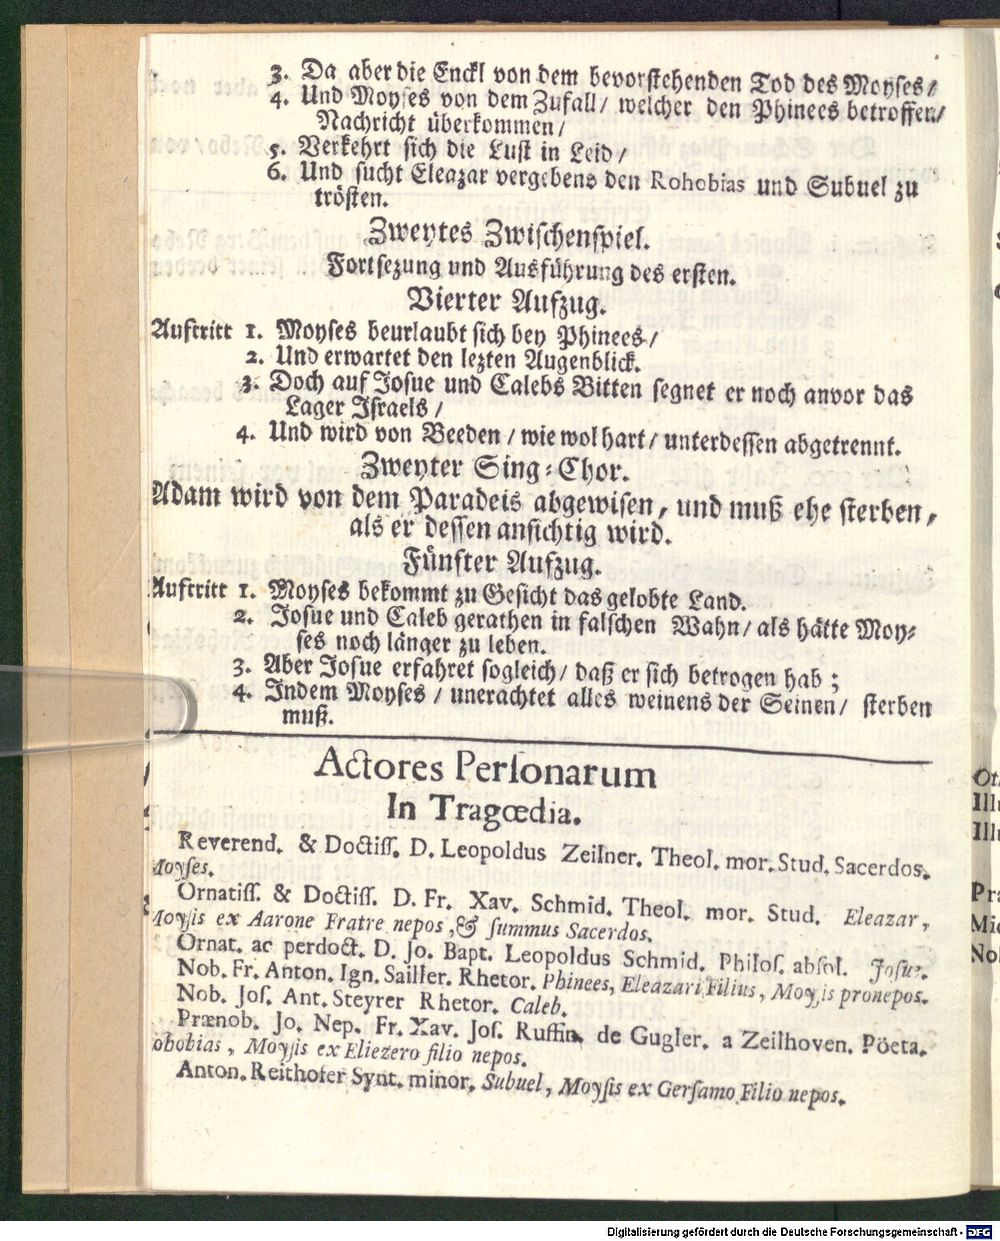 3. Da aber die Enckl von dem bevorstehenden Tod des Moyses /
4. Und Moyses von dem Zufall / welcher den Phinees betroffen /
Nachricht überkommen /
5. Verkehrt sich die Lust in Leid /
6. Und sucht Eleazar vergebens den Rohobias und Subuel zu
trösten.
Zweytes Zwischenspiel.
Fortsezung und Ausführung des ersten.
Vierter Aufzug.
Auftritt 1. Moyses beurlaubt sich bey Phinees /
2. Und erwartet den lezten Augenblick.
3. Doch auf Josue und Calebs Bitten segnet er noch anvor das
Lager Israels /
4. Und wird von Beeden / wie wol hart / unterdessen abgetrennt.
Zweyter Sing-Chor.
Adam wird von dem Paradeis abgewisen, und muß ehe sterben,
als er dessen ansichtig wird.
Fünfter Aufzug.
Auftritt 1. Moyses bekommt zu Gesicht das gelobte Land.
2. Josue und Caleb gerathen in falschen Wahn / als hätte Moy-
ses noch länger zu leben.
3. Aber Josue erfahret sogleich / daß er sich betrogen hab ;
4. Indem Moyses / unerachtet alles weinens der Seinen / sterben
muß.
Actores Personarum
In Tragœdia.
Reverend. & Doctiss. D. Leopoldus Zeilner. Theol. mor. Stud. Sacerdos.
Moyses.
Ornatiss. & Doctiss. D. Fr. Xav. Schmid. Theol. mor. Stud. Eleazar,
Moysis ex Aarone Fratre nepos, & summus Sacerdos.
Ornat. ac perdoct. D. Jo. Bapt. Leopoldus Schmid. Philos. absol. Josue.
Nob. Fr. Anton. Ign. Sailler. Rhetor. Phinees, Eleazari Filius, Moysis pronepos.
Nob. Jos. Ant. Steyrer Rhetor. Caleb.
Prænob. Jo. Nep. Fr. Xav. Jos. Ruffin. de Gugler. a Zeilhoven. Pöeta.
ohobias, Moysis ex Eliezero filio nepos.
Anton. Reithofer Synt. minor. Subuel, Moysis ex Gersamo Filio nepos.
Illu
Illu
Pra
Mic
No
Digitalisierung gefördert durch die Deutsche Forschungsgemeinschaft - DFG